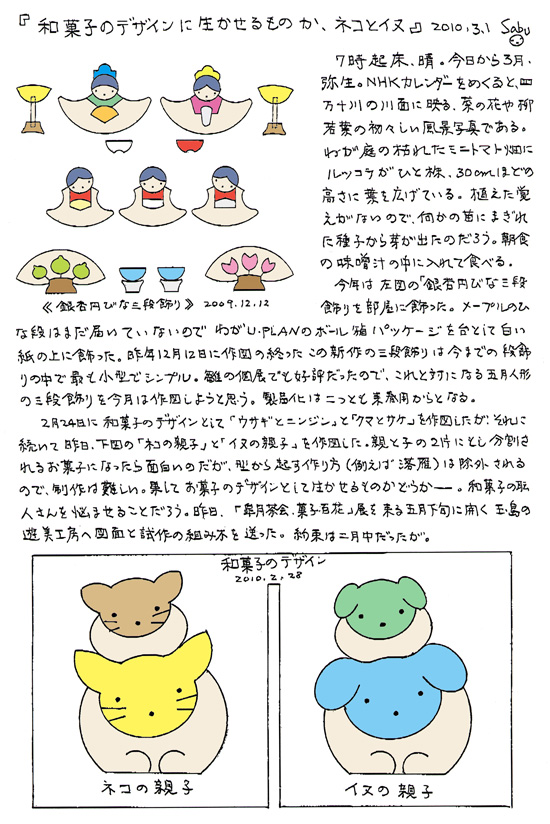 『和菓子のデザインに生かせるものか、ネコとイヌ』2010.3.1 Sabu
7時起床、晴。今日から3月、
弥生。NHKカレンダーをめくると、四
万十川の川面に映る、菜の花や柳
若葉の初々しい風景写真である。
わが庭の枯れたミニトマト畑に
ルッコラがひと株、30cmほどの
高さに葉を広げている。植えた覚
えがないので、何かの苗にまぎれ
た種子から芽が出たのだろう。朝食
の味噌汁の中に入れて食べる。
今年は左図の「銀杏円びな三段
飾り」を部屋に飾った。メープルのひ
《銀杏円びな三段飾り》2009.12.12
な段はまだ届いていないので わがU.PLANのボール箱パッケージを台として白い
紙の上に飾った。昨年12月12日に作図の終った この新作の三段飾りは今までの段飾
りの中で最も小型でシンプル。雛の個展でも好評だったので、これと対になる五月人形
の三段飾りを今月は作図しようと思う。製品化は二つとも来春用からとなる。
2月24日に和菓子のデザインとして「ウサギとニンジン」と「クマとサケ」を作図したが、それに
続いて昨日、下図の「ネコの親子」と「イヌの親子」を作図した。親と子の2片にとし分割さ
れるお菓子になったら面白いのだが、型から起す作り方(例えば落雁)は除外される
ので、制作は難しい。果してお菓子のデザインとして生かせるものかどうか―。和菓子の職
人さんを悩ませることだろう。昨日、「皐月茶会、菓子百花」展を来る五月下旬に開く玉島の
遊美工房へ図面と試作の組み木を送った。約束は二月中だったが。
和菓子のデザイン
2010.2.28
ネコの親子
イヌの親子